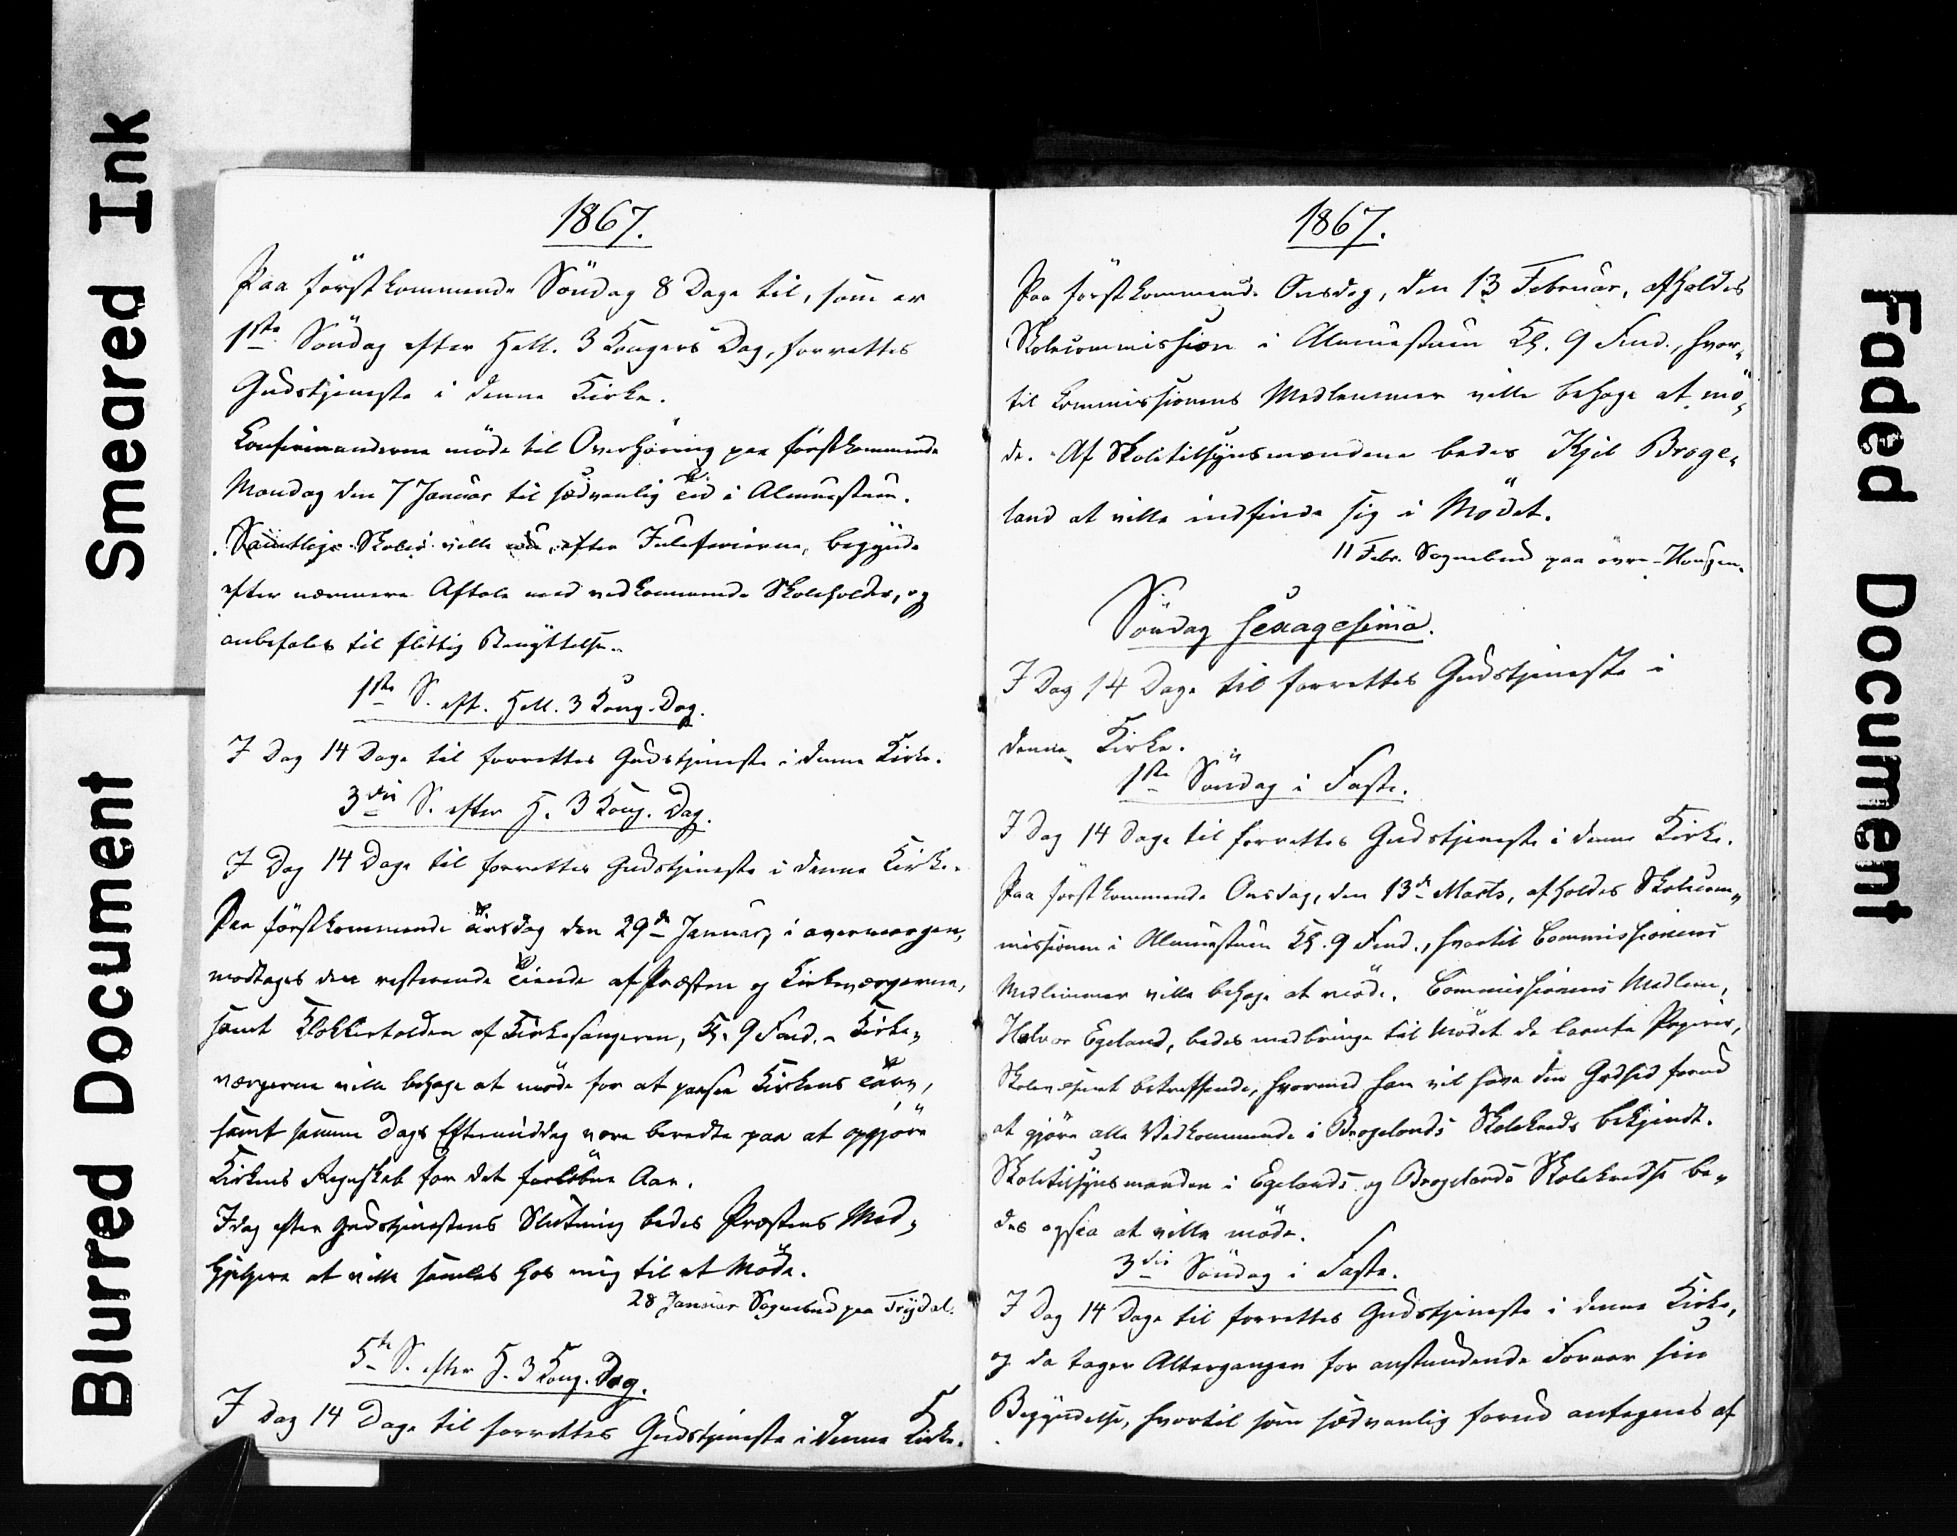 Smeared Ink
Blurred Document
Faded Document
1867.
Paa förstkommende Söndag 8 Dage til, som er
1ste Söndag efter Hell. 3 Kongers Dag, forrettes
Gudstjeneste i denne Kirke.
Konfirmanderne möde til Overhöring paa förstkommende
Mandag den 7 Januar til sædvanlig Tid i Almuestuen.
Samtlige Skoler ville nu, efter Juleferierne, begynde
efter nærmere Aftale med vedkommende Skoleholder, og
anbefales til flittig Benyttelse.
1ste S. eft. Hell. 3 Kong. Dag.
I Dag 14 Dage til forrettes Gudstjeneste i denne Kirke.
3die S. efter H. 3 Kong. Dag.
I Dag 14 Dage til forrettes Gudstjeneste i denne Kirke.
Paa förstkommende Tirsdag den 29de Januar, i overmorgen,
modtages den resterende Tiende af Præsten og Kirkeværgerne,
samt Klokkertolden af Kirkesangeren, Kl. 9 Formd. - Kirke-
værgerne ville behage at möde for at passe Kirkens Tarv,
samt samme Dags Eftermiddag være beredte paa at opgjöre
Kirkens Regnskab for det forlöbne Aar.
Idag efter Gudstjenestens Slutning bedes Præstens Med-
hjelpere at ville samles hos mig til et Möde.
28 Januar Sognebud paa Trydal.
5te S. efter H. 3 Kong. Dag.
I Dag 14 Dage til forrettes Gudstjeneste i denne Kirke.
1867.
Paa förstkommende Onsdag, den 13 Februar, afholdes
Skolecommission i Almuestuen Kl. 9 Fmd., hvor-
til Commissionens Medlemmer ville behage at mö-
de. Af Skoletilsynsmændene bedes Kjil Broge-
land at ville indfinde sig i Mödet.
11 Febr. Sognebud paa övre-Haugen.
Söndag sexagesima.
I Dag 14 Dage til forrettes Gudstjeneste i
denne Kirke.
1ste Söndag i Faste.
I Dag 14 Dage til forrettes Gudstjeneste i denne Kirke.
Paa förstkommende Onsdag, den 13de Marts, afholdes Skolecom-
missionen i Almuestuen Kl. 9 Fmd., hvortil Commissionens
Medlemmer ville behage at möde. Commissionens Medlem,
Halvor Egeland, bedes medbringe til Mödet de laante Papirer,
Skolevæsenet betreffende, hvormed han vil have den Godhed forud
at gjöre alle Vedkommende i Brogelands Skolekreds bekjendt.
Skoletilsynsmanden i Egelands og Brogelands Skolekredse be-
des ogsaa at ville möde.
3die Söndag i Faste.
I Dag 14 Dage til forrettes Gudstjeneste i denne Kirke,
og da tager Altergangen for anstundende Foraar sin
Begyndelse, hvortil som sædvanlig forud antegnes af